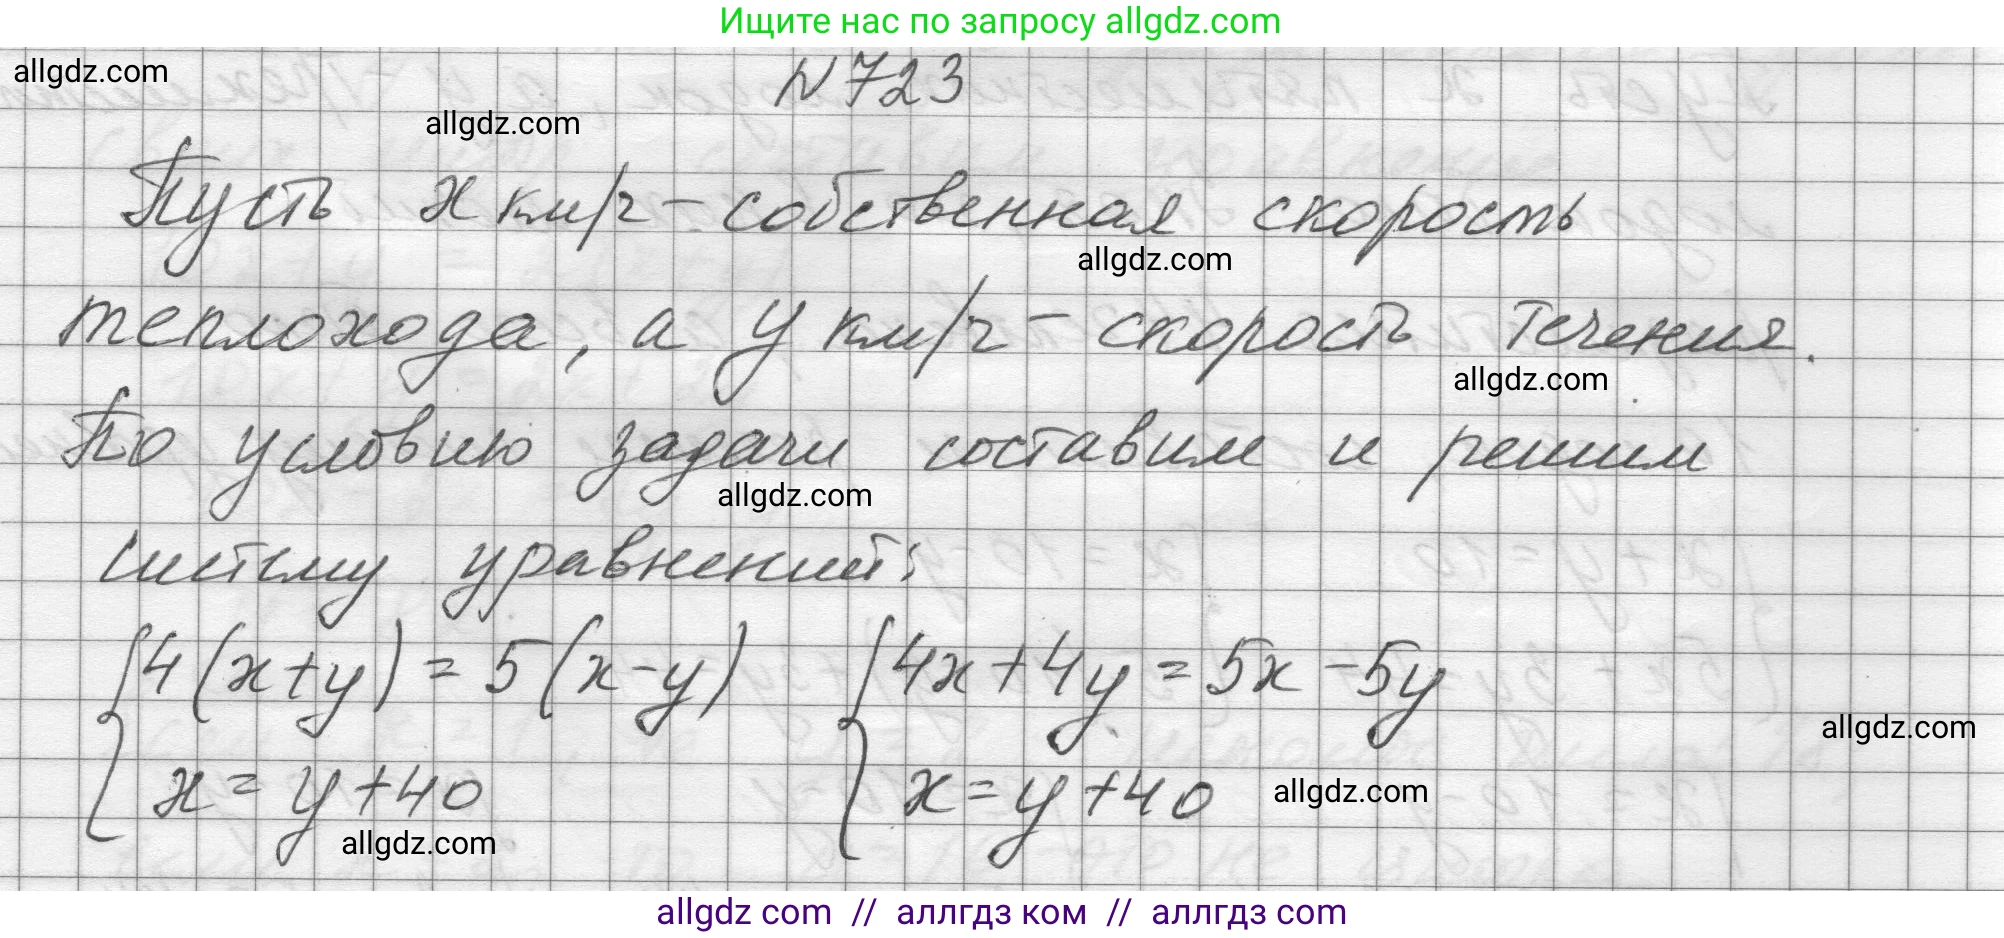 Ищите нас по запросу allgdz.com
allgdz.com
№723
allgdz.com
Пусть x км/ч - собственная скорость
allgdz.com
теплохода, а y км/ч - скорость течения.
allgdz.com
По условию задачи составим и решим
allgdz.com
систему уравнений:
{4(x+y)=5(x-y) {4x+4y=5x-5y
allgdz.com
x=y+40 x=y+40
allgdz.com
allgdz.com
allgdz com // аллгдз ком // аллгдз com